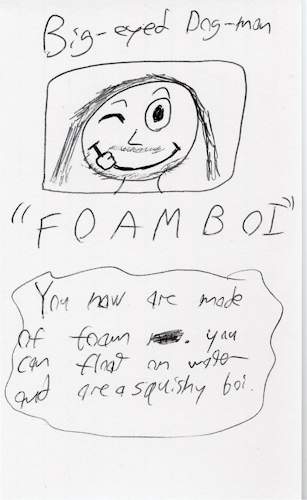 Big-eyed Dog-man
"FOAM BOI"
You now are made
of foam . you
can float on water
and are a squishy boi.